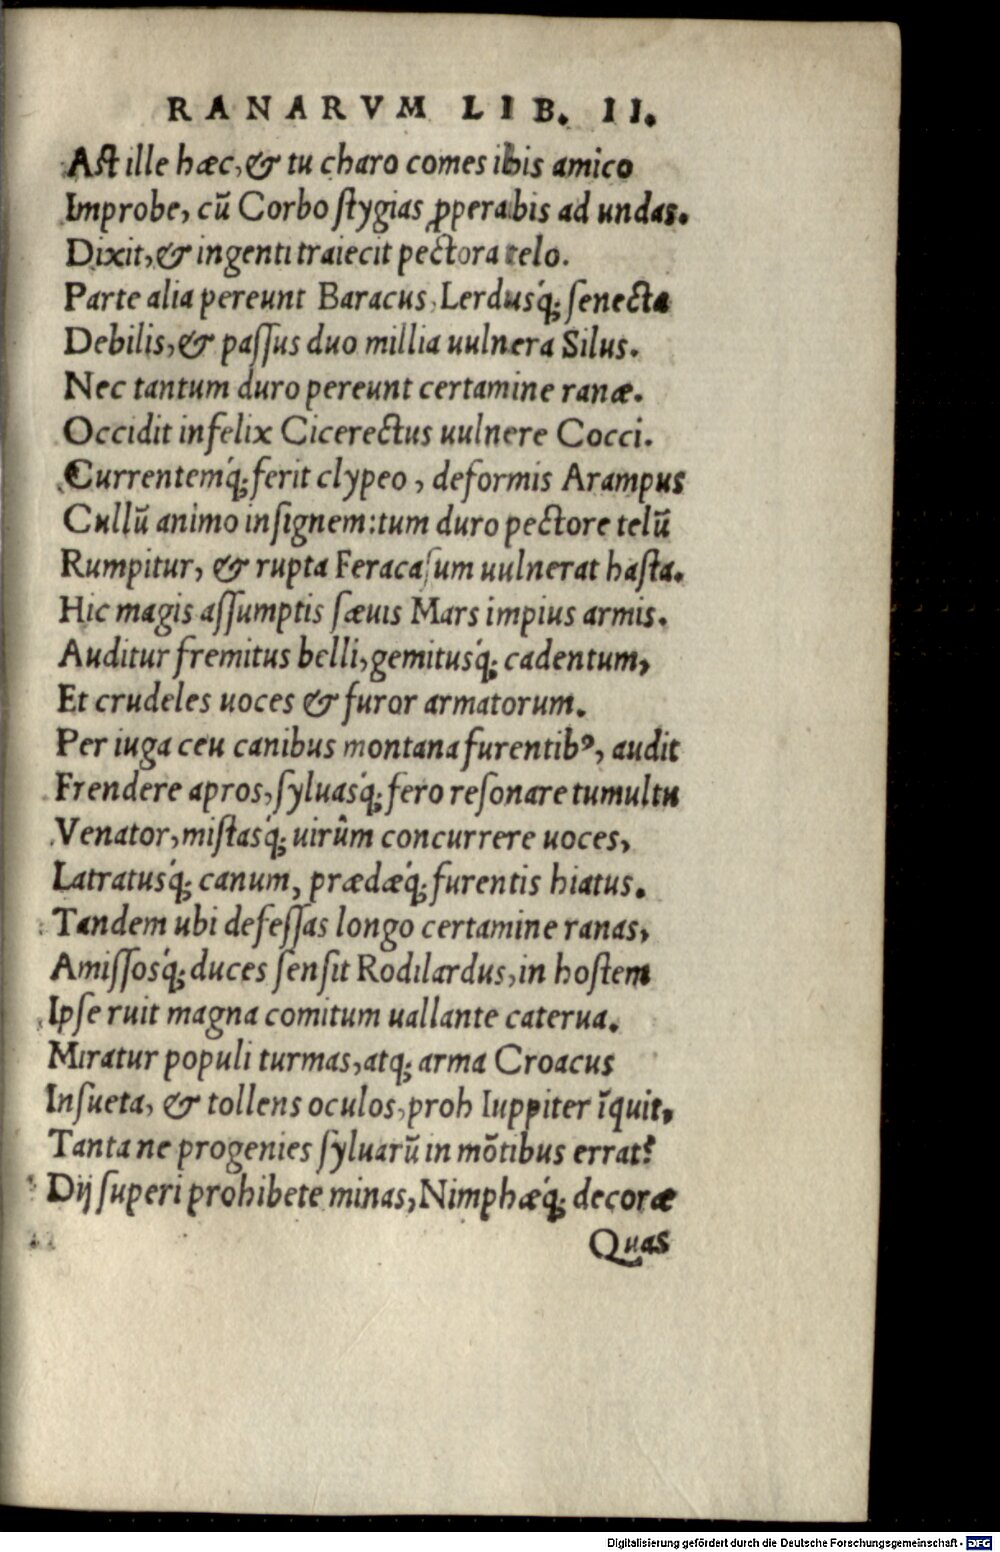 RANARVM LIB. II.
Aſt ille hæc, & tu charo comes ibis amico
Improbe, cū Corbo ſtygias ꝓperabis ad undas.
Dixit, & ingenti traiecit pectora telo.
Parte alia pereunt Baracus, Lerdusq́; ſenecta
Debilis, & paſſus duo millia uulnera Silus.
Nec tantum duro pereunt certamine ranæ.
Occidit infelix Cicerectus uulnere Cocci.
Currentemq́; ferit clypeo, deformis Arampus
Cullū animo inſignem: tum duro pectore telū
Rumpitur, & rupta Feracaſum uulnerat haſta.
Hic magis aſſumptis ſæuis Mars impius armis.
Auditur fremitus belli, gemitusq́; cadentum,
Et crudeles uoces & furor armatorum.
Per iuga ceu canibus montana furentibꝰ, audit
Frendere apros, ſyluasq́; fero reſonare tumultu
Venator, miſtasq́; uirûm concurrere uoces,
Latratusq́; canum, prædæq́; furentis hiatus.
Tandem ubi defeſſas longo certamine ranas,
Amiſſosq́; duces ſenſit Rodilardus, in hoſtem
Ipſe ruit magna comitum uallante caterua.
Miratur populi turmas, atq; arma Croacus
Inſueta, & tollens oculos, proh Iuppiter īquit,
Tanta ne progenies ſyluarū in mōtibus errat?
Dij ſuperi prohibete minas, Nimphæq́; decoræ
Quas
Digitalisierung gefördert durch die Deutsche Forschungsgemeinschaft - DFG